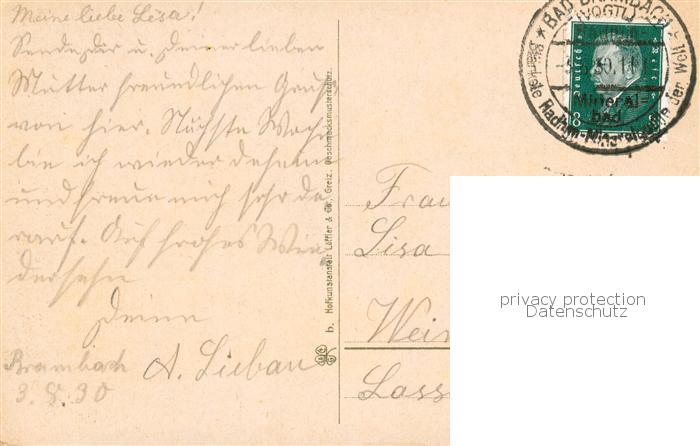 Meine liebe Lisa!
Sende Dir u. Deiner lieben
Mutter freundlichen Gruß
von hier. Nächste Woche
bin ich wieder daheim
und freue mich sehr da-
rauf. Auf frohes Wie-
dersehn
Deine
A. Lieban
Brambach
3. 8. 30
b. Hofkunstanstalt Löffler & Co., Greiz. Geschmacksmusterschutz.
BAD BRAMBACH
(VOGTL)
30.11
Mineral-
bad
Radium-Mineralquelle der Welt
Deutsches Reich
8
Frau
Lisa
Wei
Loss
privacy protection
Datenschutz